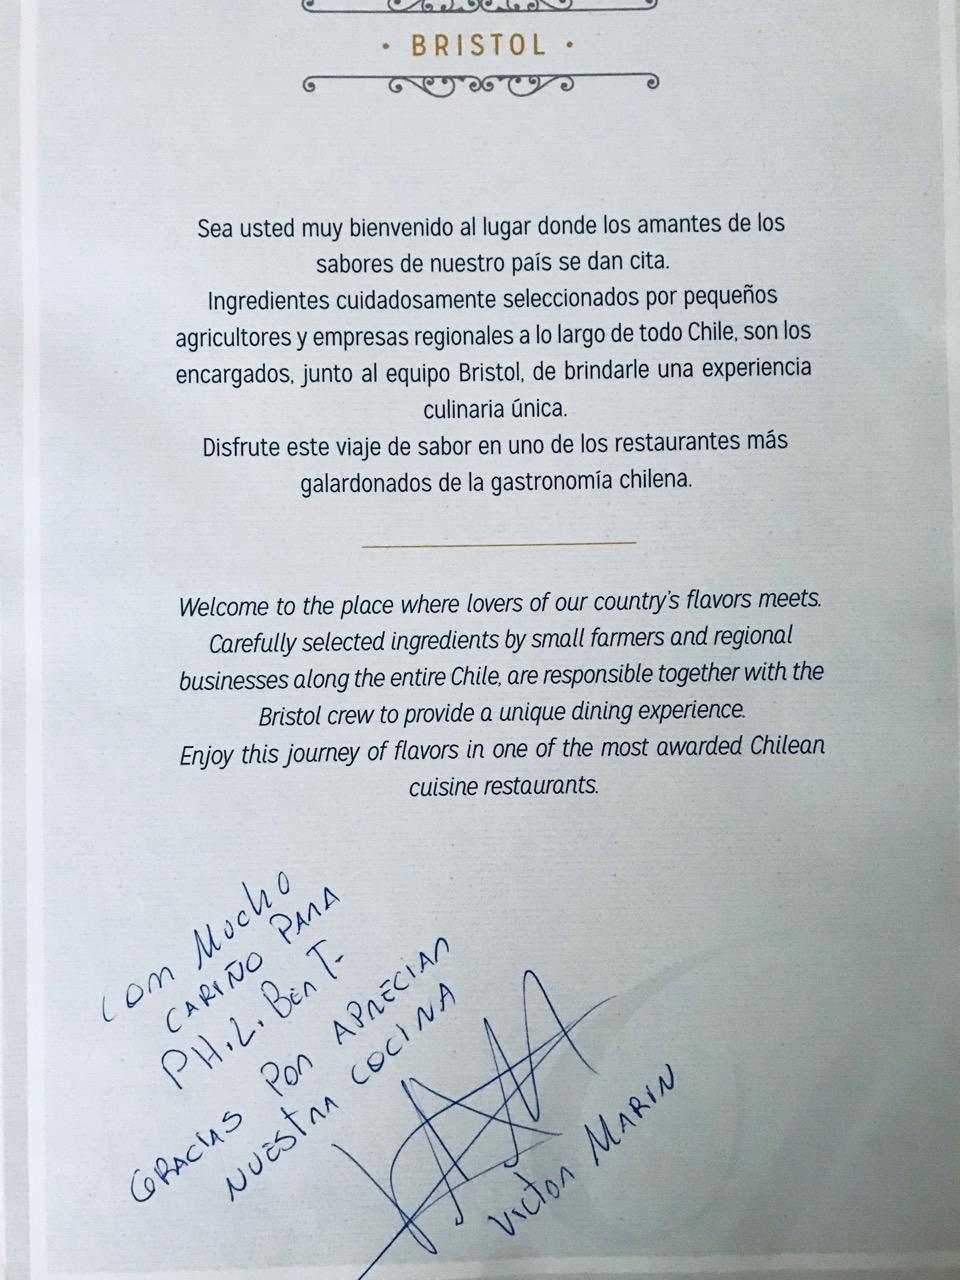 • BRISTOL •
Sea usted muy bienvenido al lugar donde los amantes de los
sabores de nuestro país se dan cita.
Ingredientes cuidadosamente seleccionados por pequeños
agricultores y empresas regionales a lo largo de todo Chile, son los
encargados, junto al equipo Bristol, de brindarle una experiencia
culinaria única.
Disfrute este viaje de sabor en uno de los restaurantes más
galardonados de la gastronomía chilena.
Welcome to the place where lovers of our country's flavors meets.
Carefully selected ingredients by small farmers and regional
businesses along the entire Chile, are responsible together with the
Bristol crew to provide a unique dining experience.
Enjoy this journey of flavors in one of the most awarded Chilean
cuisine restaurants.
Con Mucho
CARIÑO PARA
PH.L. BER T.
GRACIAS POR APRECIAR
NUESTRA COCINA
VICTOR MARIN